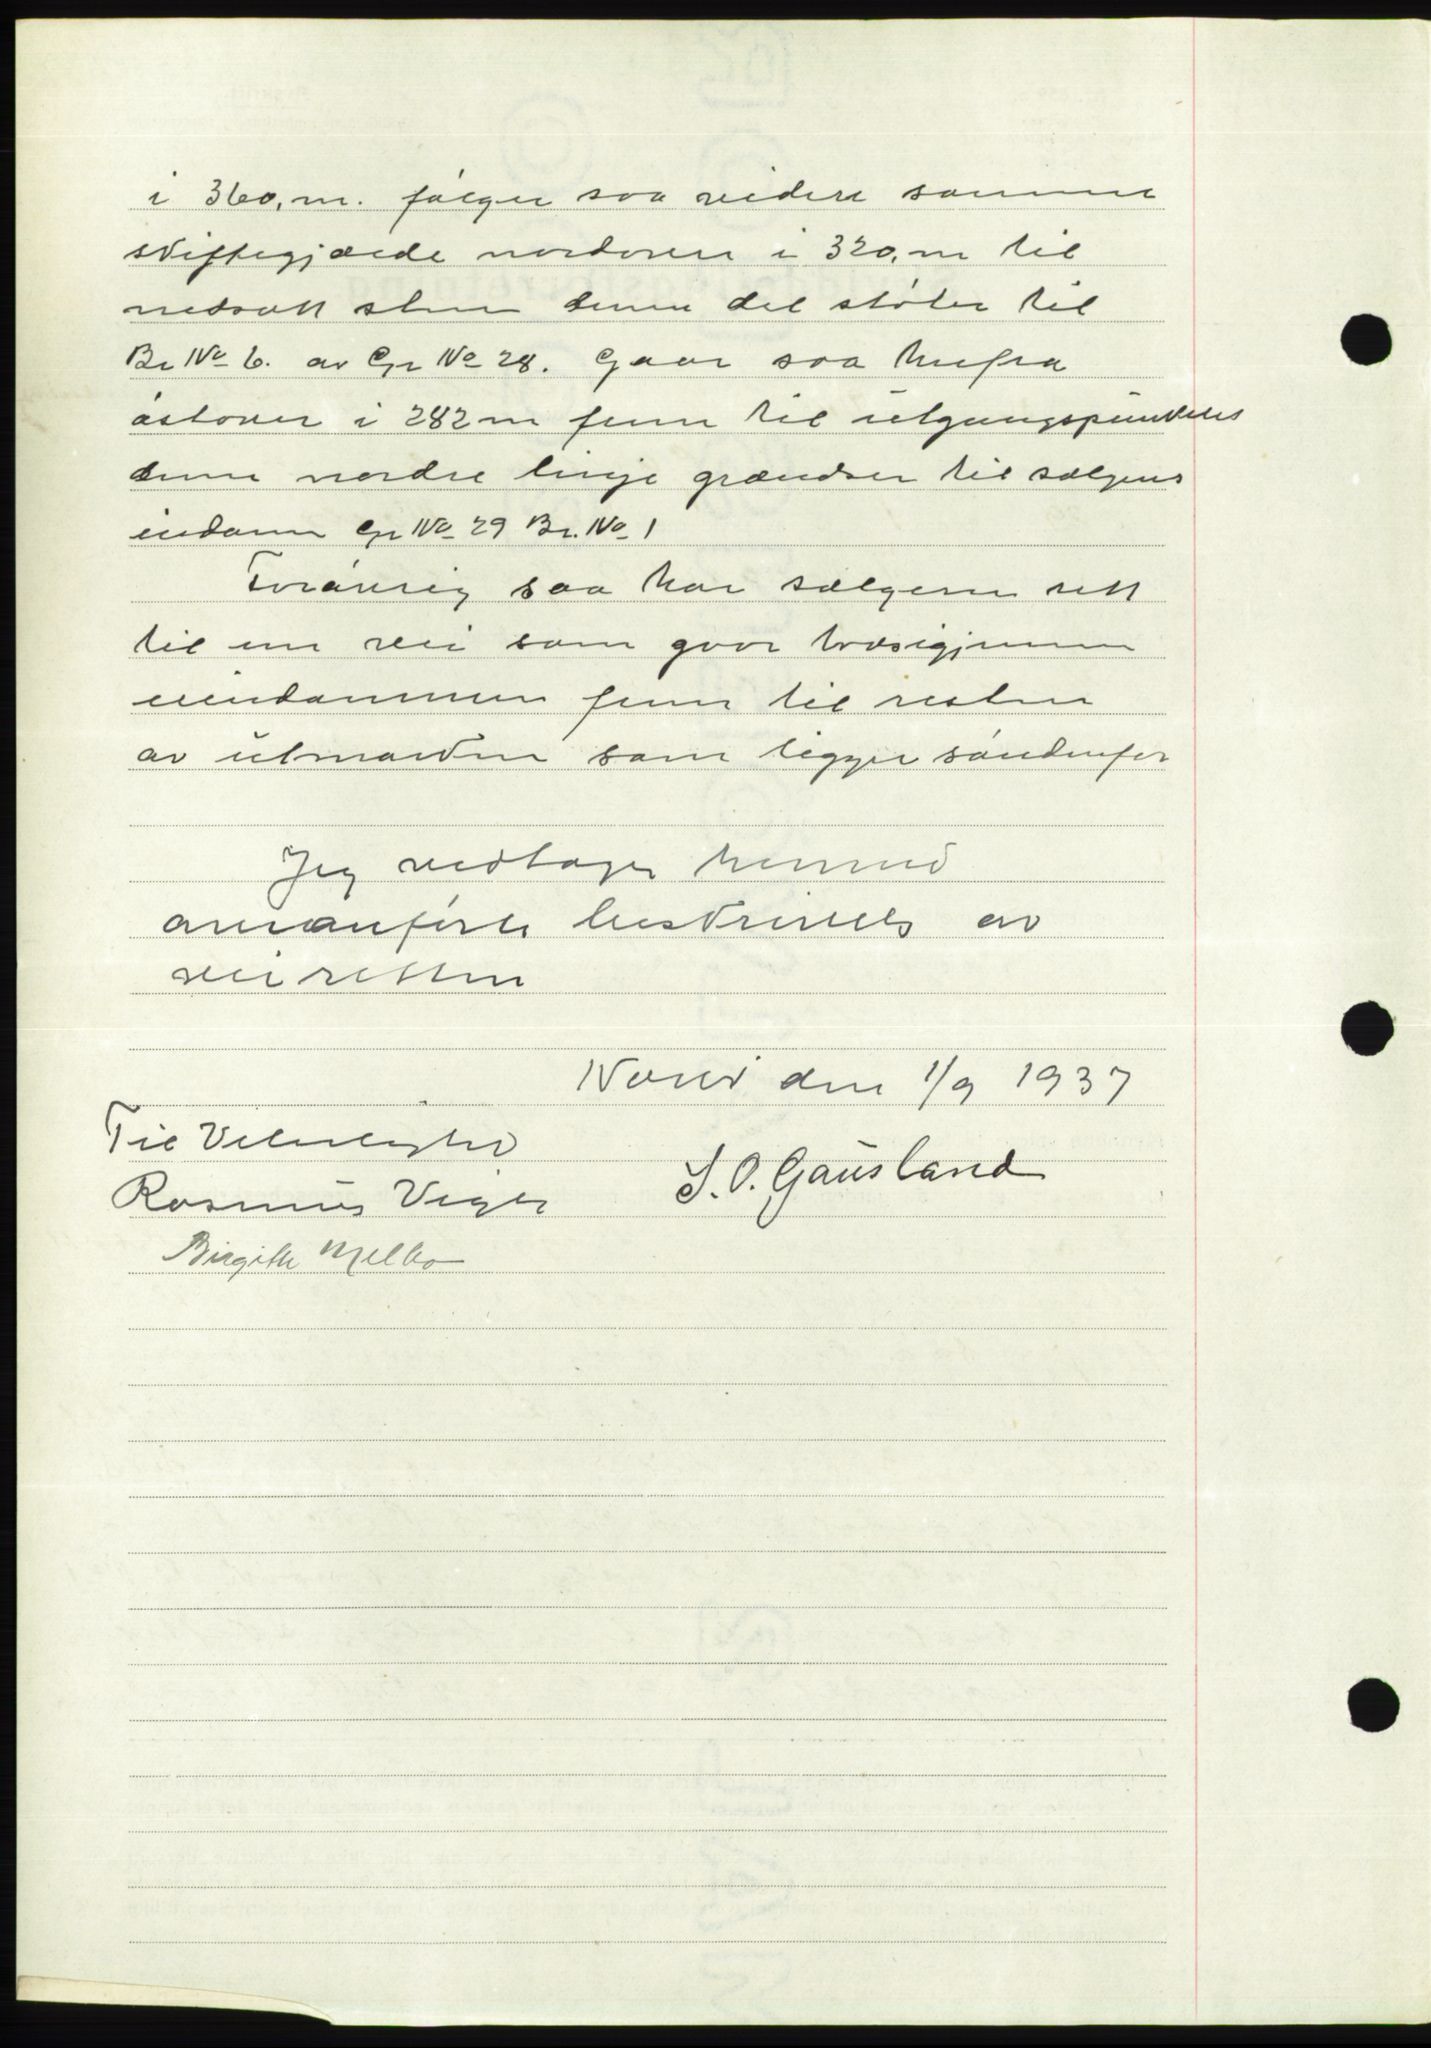 i 360,m. følger saa videre samme
skiftegjærde nordover i 320,m til
nedsatt sten denne del støter til
Br No 6. av Gr No 28. Gaar saa herfra
østover i 282 m frem til utgangspunktet
denne nordre linje grændser til sælgers
eiendom Gr No 29 Br. No 1
Forøvrig saa har sælgeren rett
til en vei som gaar tværsigjennem
eiendommen frem til resten
av utmarken som ligger søndenfor
Jeg vedtager hermed
ovenanførte beskrivels av
veiretten
den 1/9 1937
Til Vitterlighed
Rasmus
S. O. Gausland
Birgitte Melbo